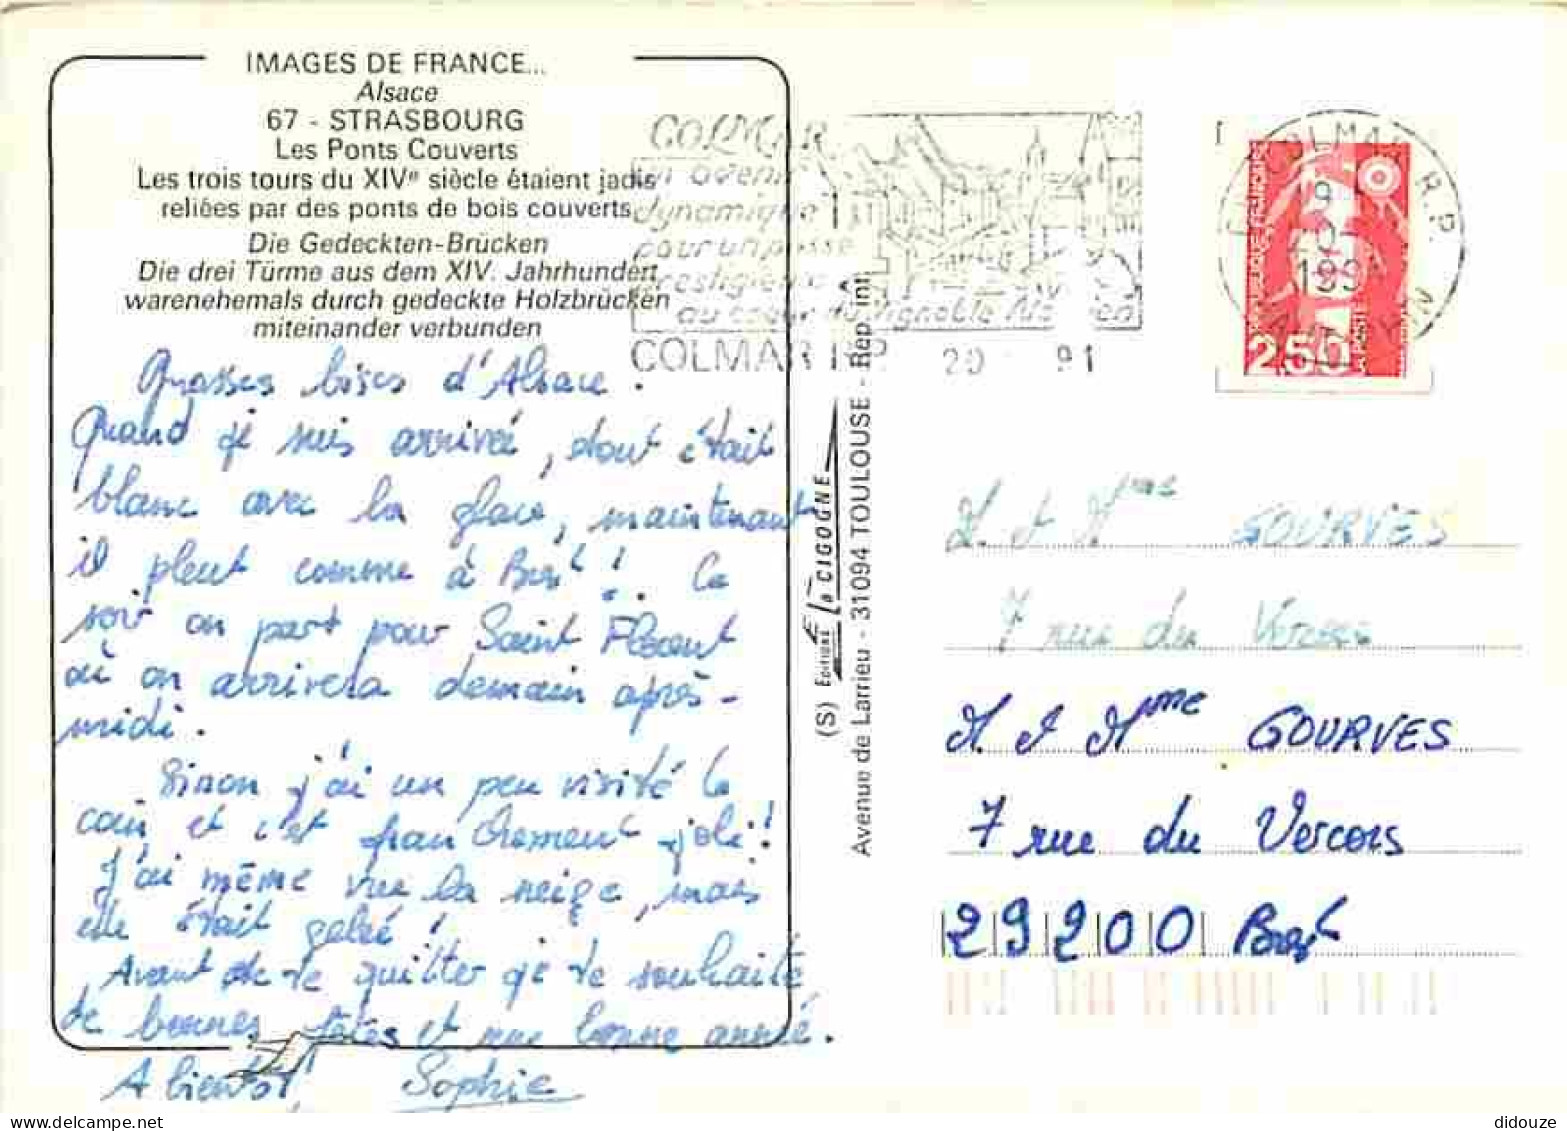 IMAGES DE FRANCE...
Alsace
67 - STRASBOURG
Les Ponts Couverts
Les trois tours du XIVe siècle étaient jadis
reliées par des ponts de bois couverts
Die Gedeckten-Brücken
Die drei Türme aus dem XIV. Jahrhundert
warenehemals durch gedeckte Holzbrücken
miteinander verbunden
Grosses bises d'Alsace.
Quand je suis arrivée, tout était
blanc avec la glace, maintenant
il pleut comme à Brest ! Ce
soir on part pour Saint Florent
où on arrivera demain après-
midi.
Sinon j'ai un peu visité le
coin et c'est franchement joli !
J'ai même vu la neige, mais
elle était gelée !
Avant de te quitter je te souhaite
de bonnes fêtes et une bonne année.
A bientôt ! Sophie
COLMAR
un avenir
dynamique
pour un passé
prestigieux
au coeur du vignoble Alsacien
COLMAR R.P. 20 91
(S) Editions La CIGOGNE
Avenue de Larrieu - 31094 TOULOUSE - Rep. int.
COLMAR R.P.
HAUT-RHIN
REPUBLIQUE FRANÇAISE
LA POSTE
2,50
M. et Mme GOURVES
7 rue du Vercors
M. et Mme GOURVES
7 rue du Vercors
29200 Brest
didouze